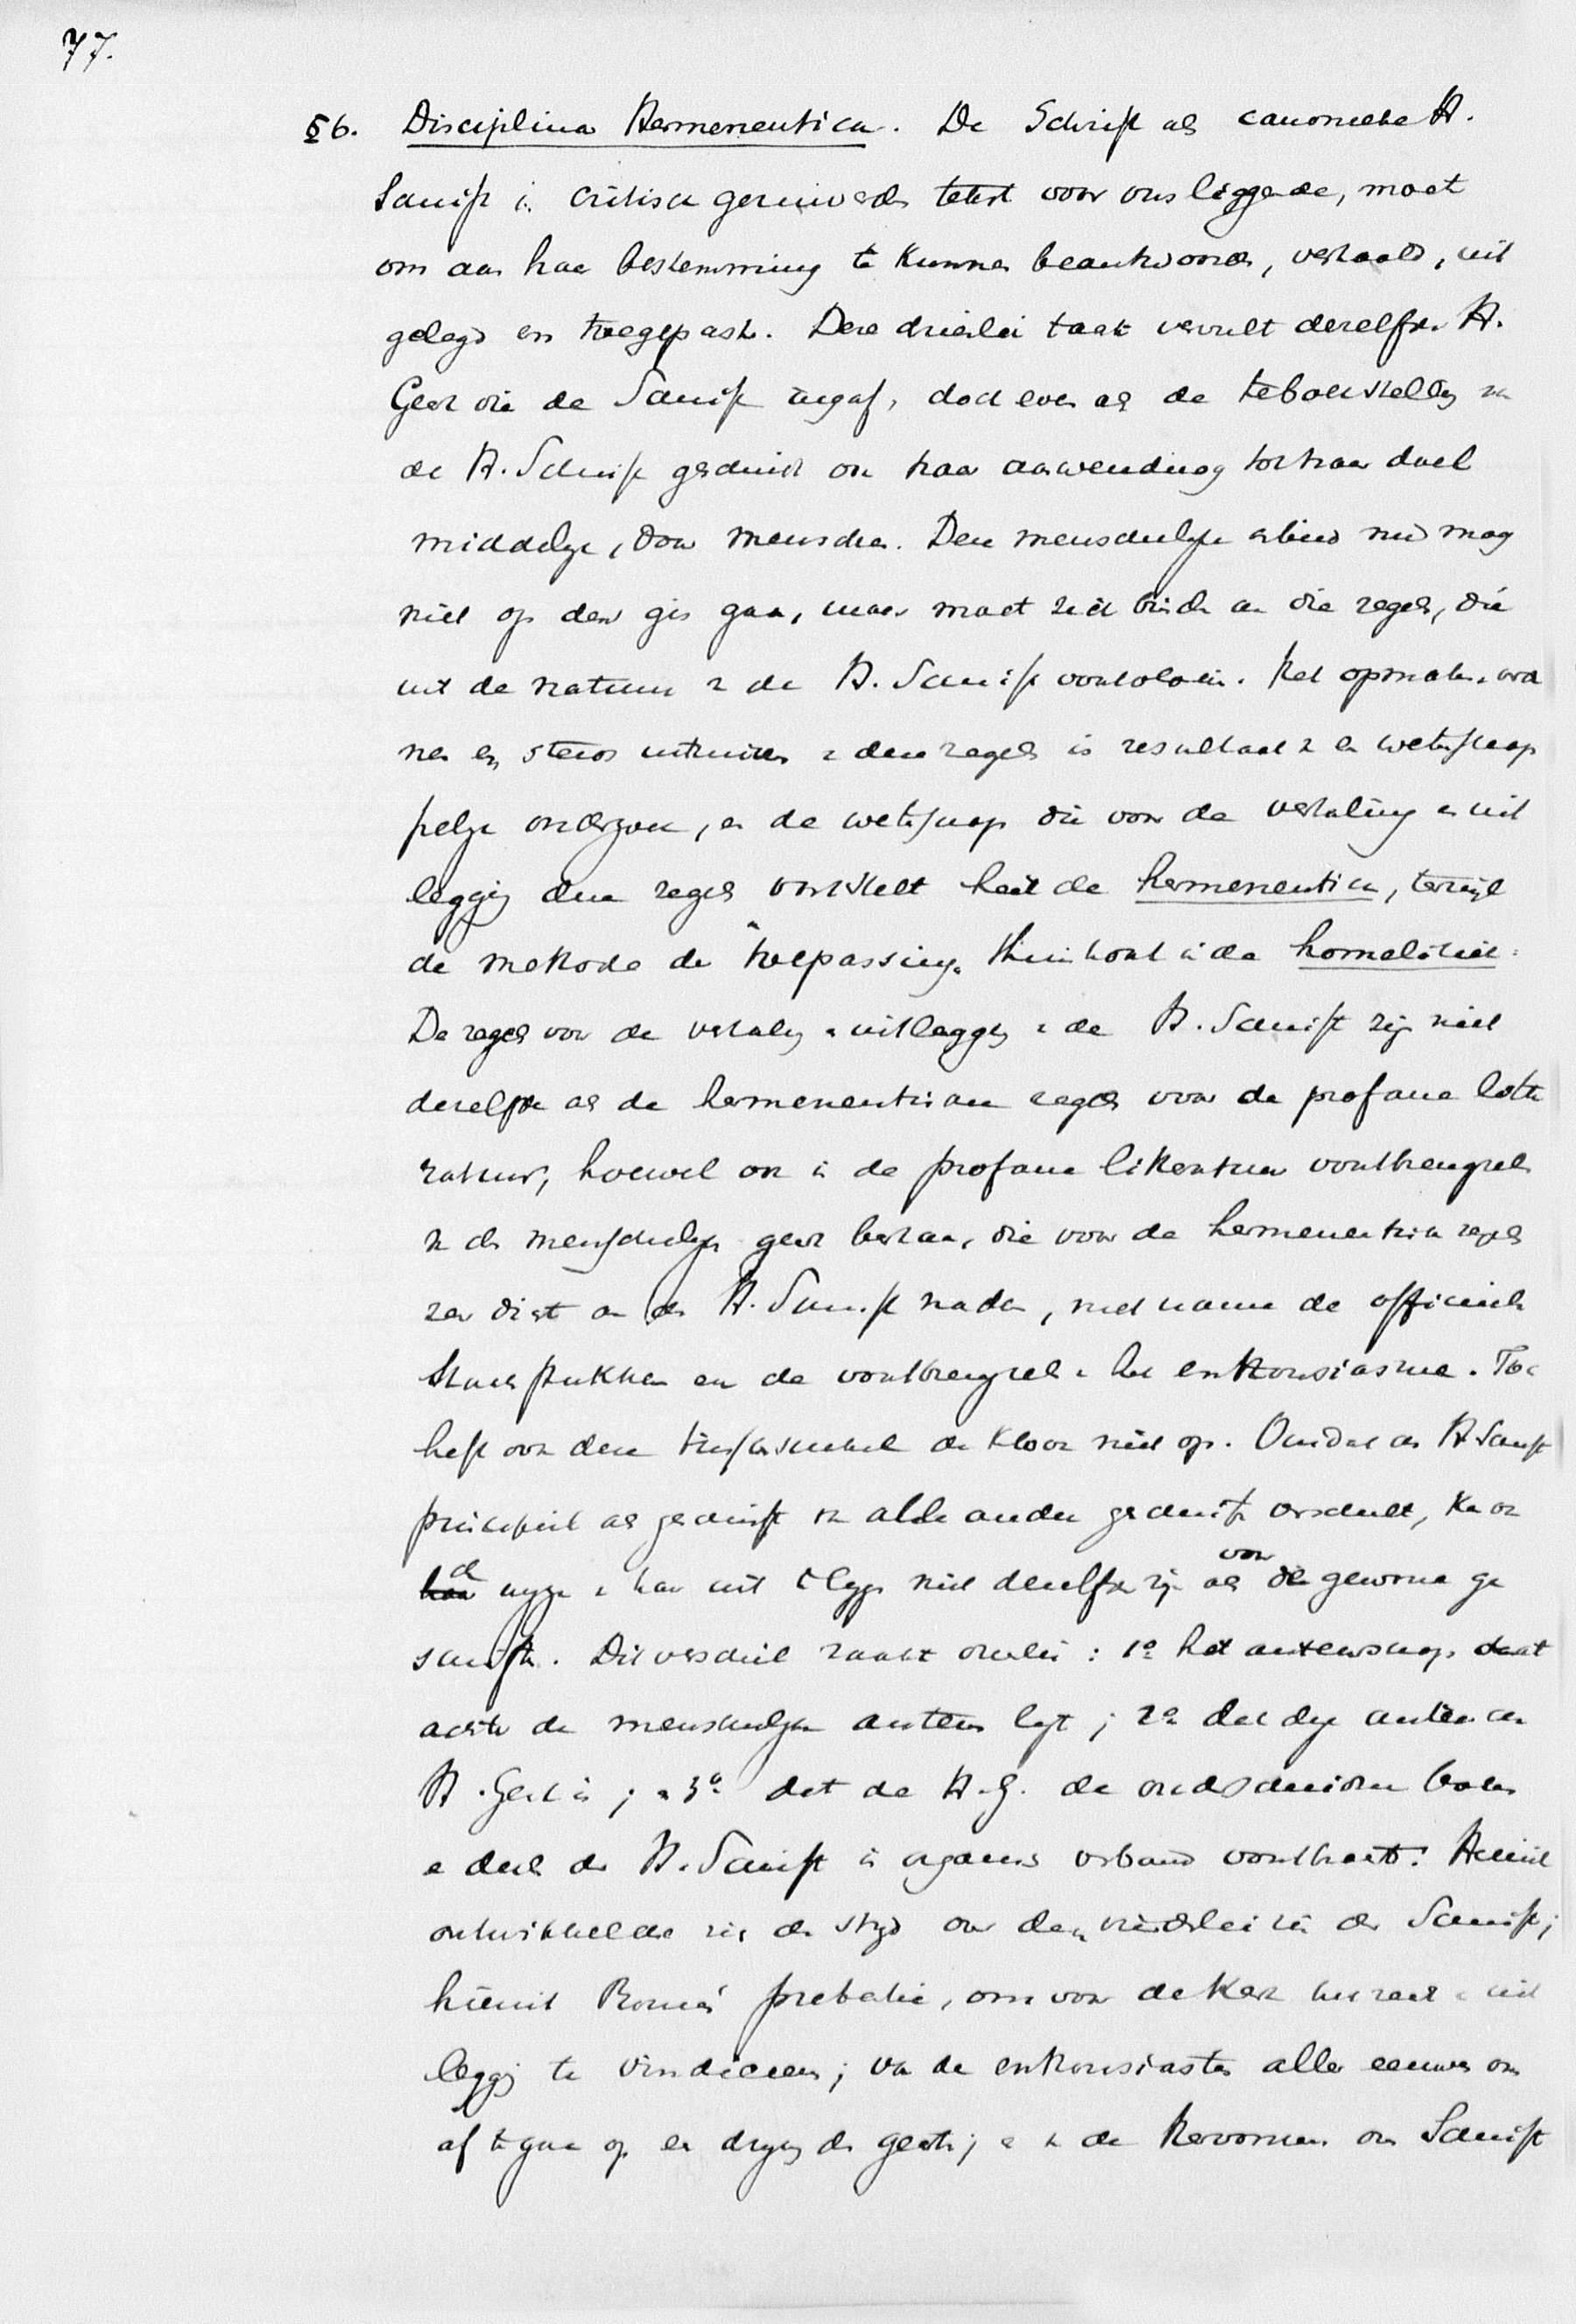 77.
§6. Disciplina Hermeneutica. De Schrift als canonieke H.
Schrift in critisch gezuiverden tekst voor ons liggende, moet
om aan haar bestemming te kunnen beantwoorden, vertaald, uit
gelegd en toegepast. Deze drieërlei taak vervult dezelfde H.
Geest die de Schrift ingaf, doch even als de teboekstelling van
de H. Schrift geschiedt ook haar aanwending tot haar doel
middelijk, door menschen. Deze menschelijke arbeid nu mag
niet op den gis gaan, maar moet zich binden aan die regels, die
uit de natuur van de H. Schrift voortvloeien. Het opmaken, orde
nen en steeds uitzuiveren van deze regels is resultaat van een wetenschap
pelijk onderzoek, en de wetenschap die voor de vertaling en uit
legging deze regels vaststelt heet de hermeneutica, terwijl
de methode der toepassing thuis hoort in de homiletiek.
De regels voor de vertaling en uitlegging van de H. Schrift zijn niet
dezelfde als de hermeneutische regels voor de profane litte
ratuur, hoewel ook in de profane litteratuur voortbrengselen
van den menschelijken geest bestaan, die voor de hermeneutische regels
zeer dicht aan de H. Schrift nader, met name de officieele
Staatsstukken en de voortbrengselen van het enthousiasme. Toch
heft ook deze tusschenschakel de kloof niet op. Omdat de H. Schrift
principieel als geschrift van alle ander geschrift verschilt, kan ook
de wijze van haar uit te leggen niet dezelfde zijn als voor de gewone ge
schriften. Dit verschil raakt drieërlei: 1º het auteurschap dat
achter de menschelijken auteur ligt; 2º dat deze auteur de
H. Geest is; en 3º dat de H.G. de onderscheidene boeken
en deelen der H. Schrift in organisch verband voortbracht. Hieruit
ontwikkelde zich de strijd over den veelerlei zin der Schrift;
hieruit Rome's pretentie, om voor de Kerk het recht van uit
legging te vindiceeren; van de enthousiasten aller eeuwen om
af te gaan op een drijving des geestes; en van de Hervormers om Schrift